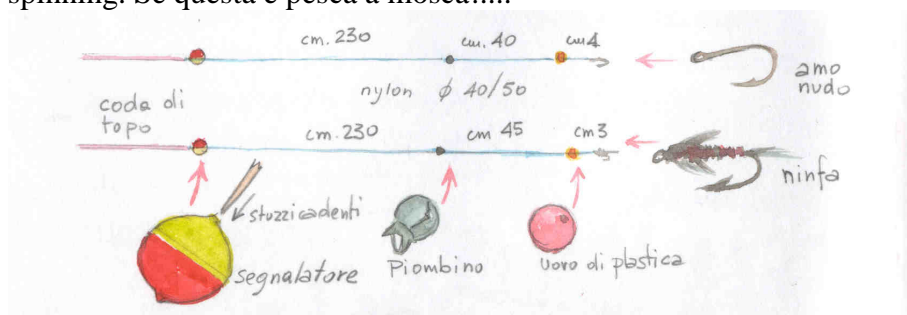 spinning. Se questa è pesca a mosca.....
cm. 230 cm. 40 cm 4
nylon ϕ 40/50
amo
nudo
coda di
topo
cm. 230 cm 45 cm 3
ninfa
stuzzicadenti
segnalatore
Piombino
uovo di plastica